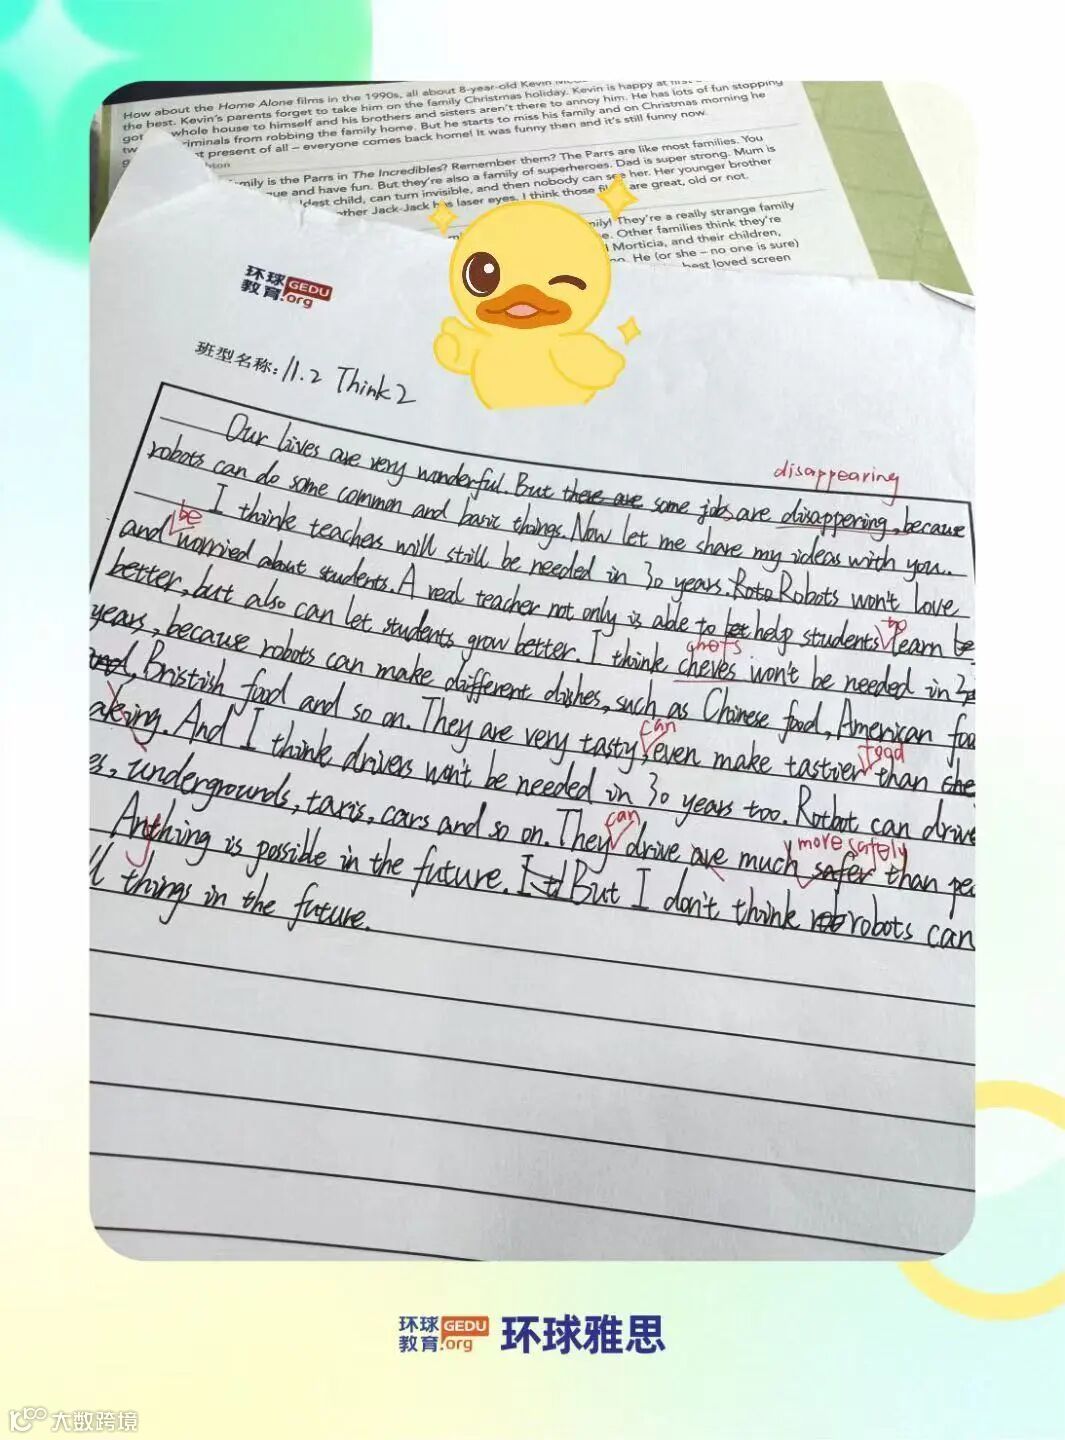 How about the Home Alone films in the 1990s, all about 8-year-old Kevin
the best. Kevin's parents forget to take him on the family Christmas holiday. Kevin is happy at first
got whole house to himself and his brothers and sisters aren't there to annoy him. He has lots of fun stopping
tw criminals from robbing the family home. But he starts to miss his family and on Christmas morning he
present of all – everyone comes back home! It was funny then and it's still funny now.
mily is the Parrs in The Incredibles? Remember them? The Parrs are like most families. You
and have fun. But they're also a family of superheroes. Dad is super strong. Mum is
ldest child, can turn invisible, and then nobody can see her. Her younger brother
other Jack-Jack has laser eyes. I think those fi are great, old or not.
mily! They're a really strange family
e. Other families think they're
Morticia, and their children,
He (or she – no one is sure)
best loved screen
环球 GEDU
教育.org
班型名称: 11.2 Think 2
disappearing
Our lives are very wonderful. But there are some jobs are disappering, because
robots can do some common and basic things. Now let me share my ideas with you.
I think teachers will still be needed in 30 years. Roto Robots won't love
be
and worried about students. A real teacher not only is able to let help students learn be
to
better, but also can let students grow better. I think cheves won't be needed in 3
chefs
years, because robots can make different dishes, such as Chinese food, American foo
Bristish food and so on. They are very tasty, even make tastier than che
can
food
aking. And I think drivers won't be needed in 30 years too. Rotbot can drive
es, undergrounds, taxis, cars and so on. They drive are much safer than pe
can
more safely
Anything is possible in the future. But I don't think rob robots can
ll things in the future.
环球 GEDU
教育.org
环球雅思
大数跨境